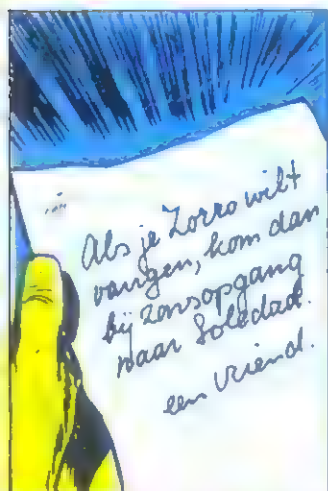 Als je Zorro wilt
vangen, kom dan
bij zonsopgang
naar Soledad.
een vriend.